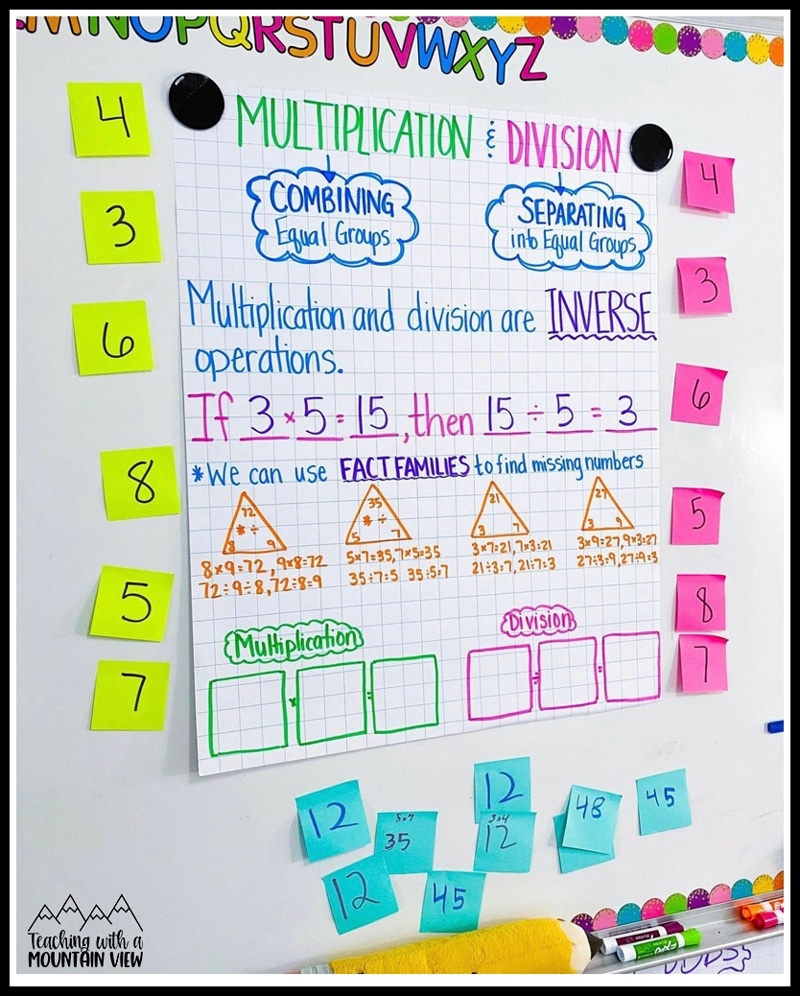 MNOPQRSTUVWXYZ
MULTIPLICATION & DIVISION
COMBINING
Equal Groups
SEPARATING
into Equal Groups
Multiplication and division are INVERSE
operations.
If 3 × 5 = 15, then 15 ÷ 5 = 3
*We can use FACT FAMILIES to find missing numbers
72
* ÷
8 9
8×9=72, 9×8=72
72÷9=8, 72÷8=9
35
* ÷
5 7
5×7=35, 7×5=35
35÷7=5 35÷5=7
21
3 7
3×7=21, 7×3=21
21÷3=7, 21÷7=3
27
3 9
3×9=27, 9×3=27
27÷3=9, 27÷9=3
Multiplication
× =
Division
÷ =
4
3
6
8
5
7
4
3
6
5
8
7
12
5×7
35
12
3×4
12
48
45
12
45
Teaching with a
MOUNTAIN VIEW